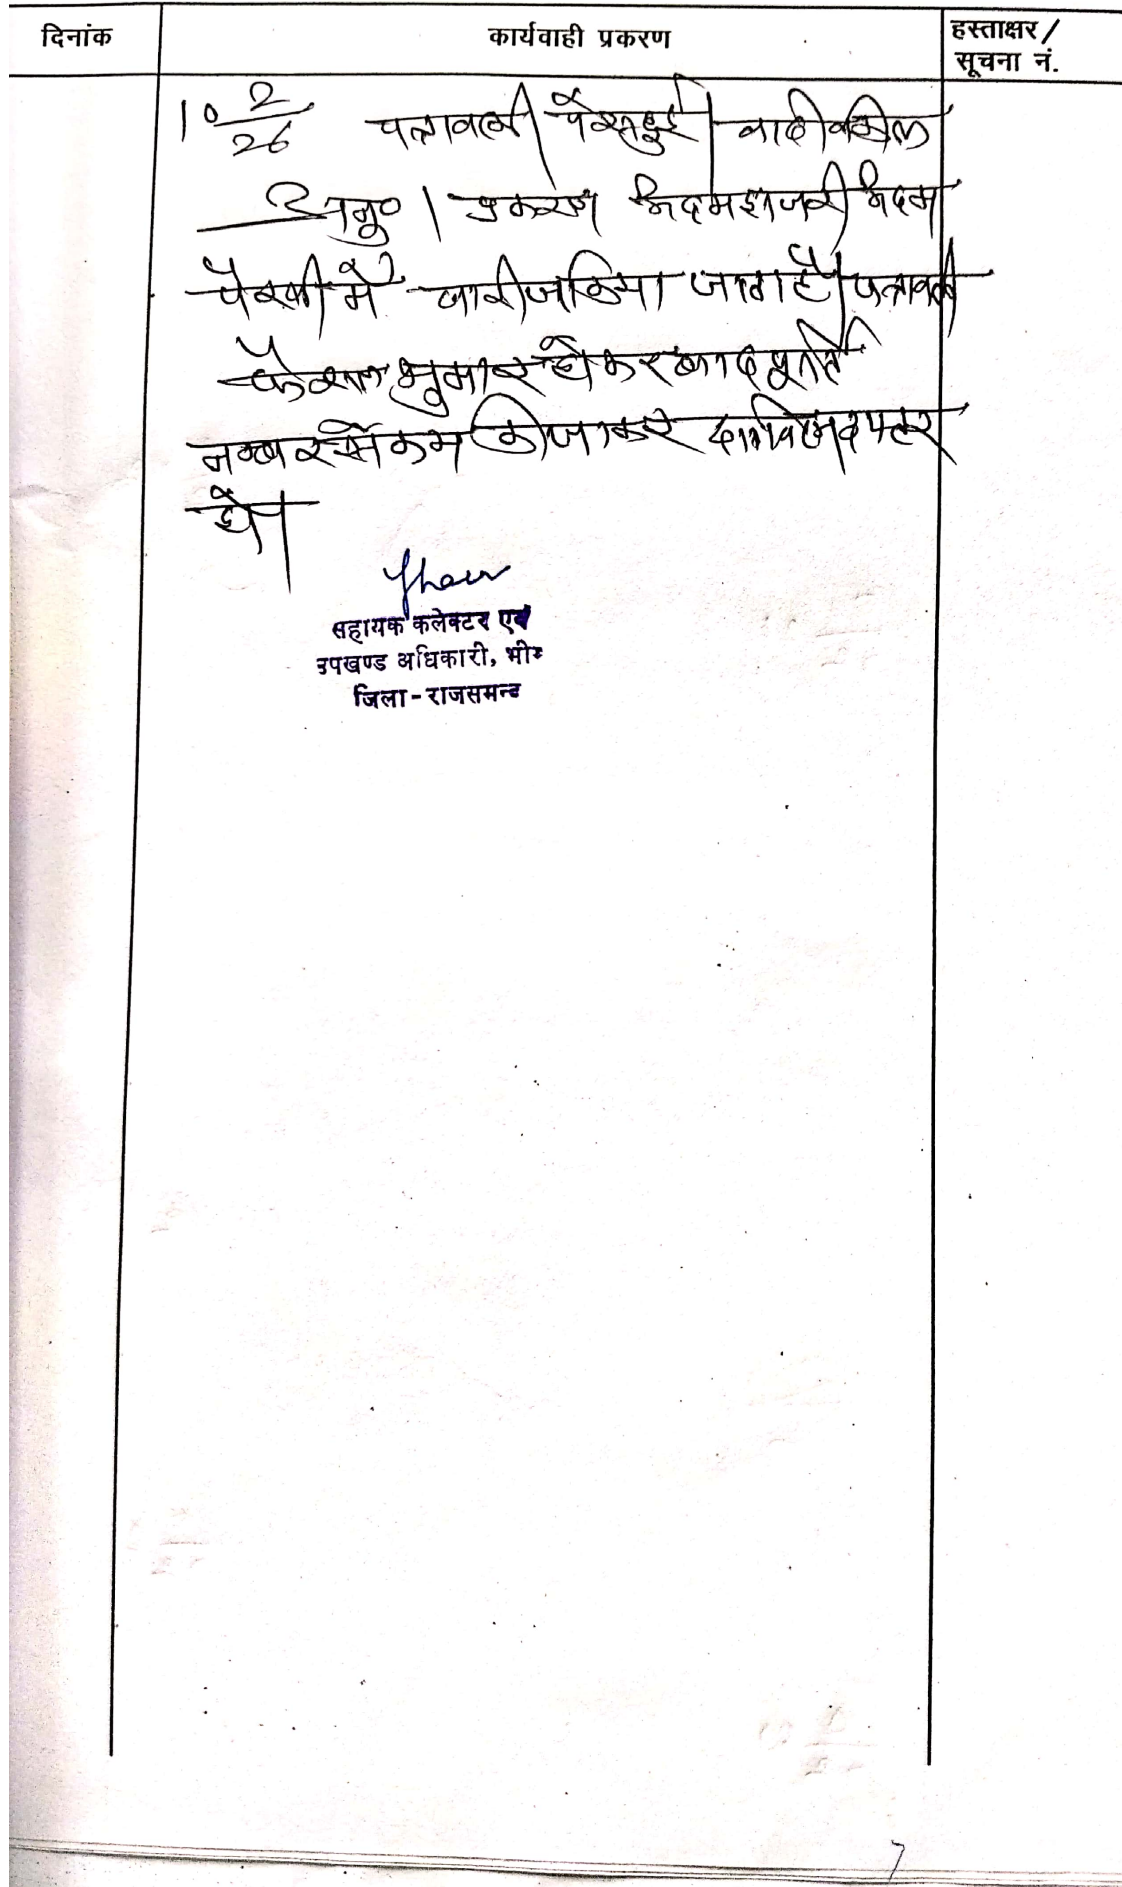 दिनांक
कार्यवाही प्रकरण
हस्ताक्षर/
सूचना नं.
10 2/26 पत्रावली पेश हुई। वादी वकील
अनु०। प्रकरण अदम हाजरी अदम
पैरवी में खारीज किया जाता है। पत्रावली
फैसल शुमार हो कर बाद पूर्ति
नम्बर से कम की जाकर दाखिल दफ्तर
हो।
सहायक कलेक्टर एवं
उपखण्ड अधिकारी, भीम
जिला-राजसमन्द